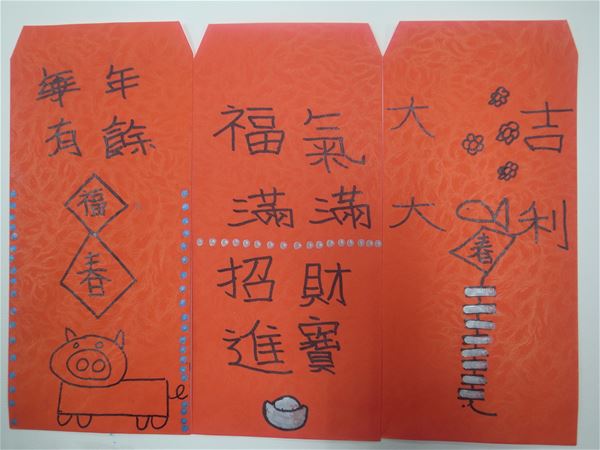 年年
有餘
福
春
福氣
滿滿
招財
進寶
大吉
大利
春